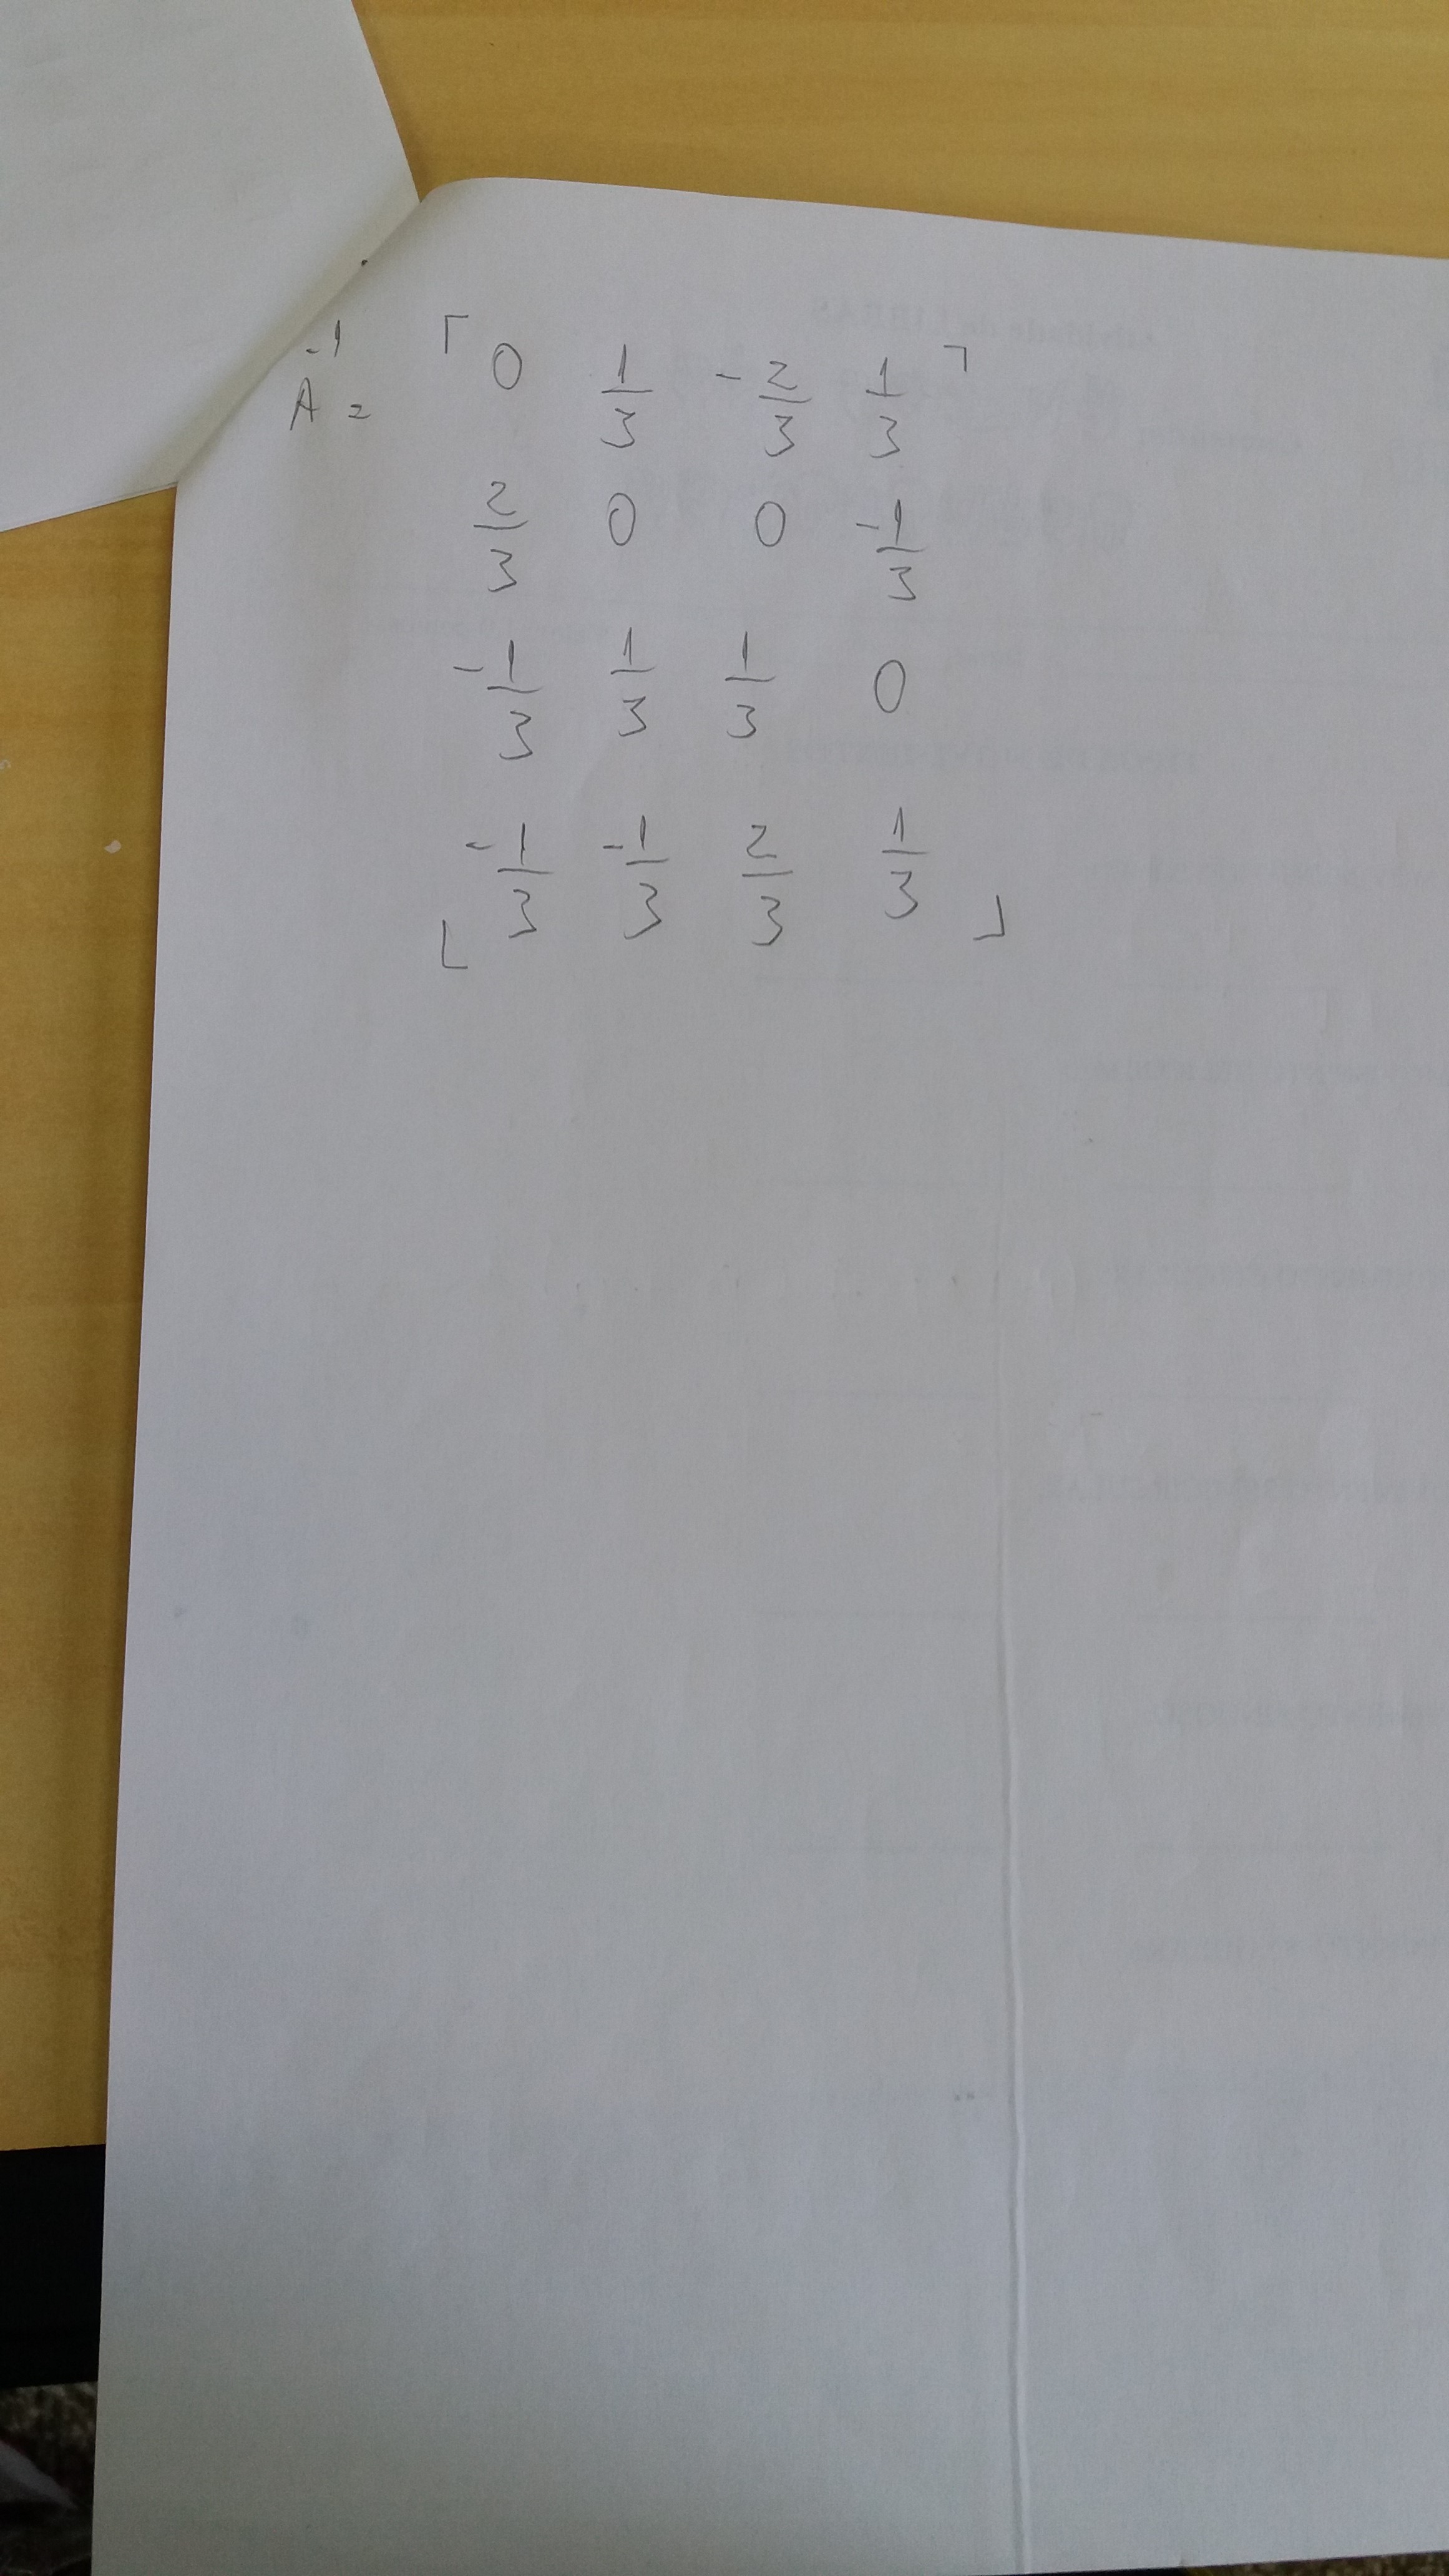 A⁻¹ = ⎡ 0 1/3 -2/3 1/3 ⎤
2/3 0 0 -1/3
-1/3 1/3 1/3 0
⎣ -1/3 -1/3 2/3 1/3 ⎦